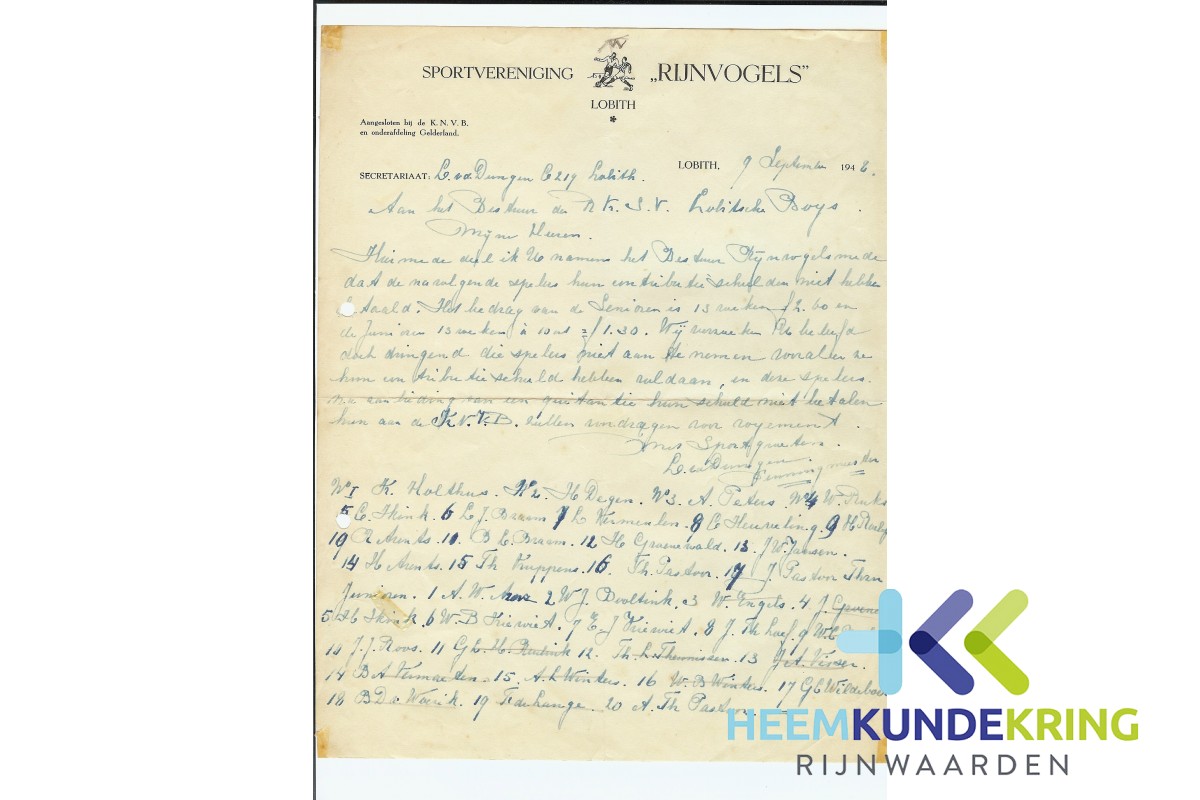 SPORTVERENIGING „RIJNVOGELS"
LOBITH
*
Aangesloten bij de K. N. V. B.
en onderafdeling Gelderland.
LOBITH, 9 September 1948.
SECRETARIAAT: L. v.d. Dungen C 219 Lobith.
Aan het Bestuur der R.K.S.V. Lobitsche Boys.
Mijne Heeren.
Hiermede deel ik U namens het Bestuur Rijnvogels mede
dat de navolgende spelers hun contributie schulden niet hebben
betaald. Het bedrag van de Senioren is 13 weken f 2.60 en
de Junioren 13 weken à 10 ct = f 1.30. Wij verzoeken U beleefd
doch dringend die spelers niet aan te nemen vooraleer ze
hun contributie schuld hebben voldaan, en deze spelers
na aanbieding van een quitantie hun schuld niet betalen
hun aan de K.N.V.B. zullen voordragen voor royement.
Met Sportgroeten.
L. v.d. Dungen.
Penningmeester
No 1 K. Holthus. No 2. H Degen. No 3. A. Peters. No 4 W.
5 C. Ikink. 6 L. J. Braam 7 L Vermeulen. 8 C Heuveling. 9 H
10 R Arents. 11. B L. Braam. 12 H Groenewald. 13. J W. Jansen.
14 H Arents. 15 Th Kuppens. 16. Th. Pastoor. 17 J. Pastoor Thzn
Junioren. 1 A. W. 2 W J. Booltink. 3 W. Engels. 4 J.
5 H Ikink. 6 W. B Kriewiet. 7 E J Kriewiet. 8 J. Th. Loef. 9 W.
10 J. J. Roos. 11 G L. H. 12. Th. L. Theunissen. 13 J. A. Visser.
14 B A Vermeulen. 15. A. L Winters. 16 W. B Winters. 17 G L Wildeboer
18 B De Waerik. 19 F. de Lange. 20 A. Th Pastoor.
HEEMKUNDEKRING
RIJNWAARDEN